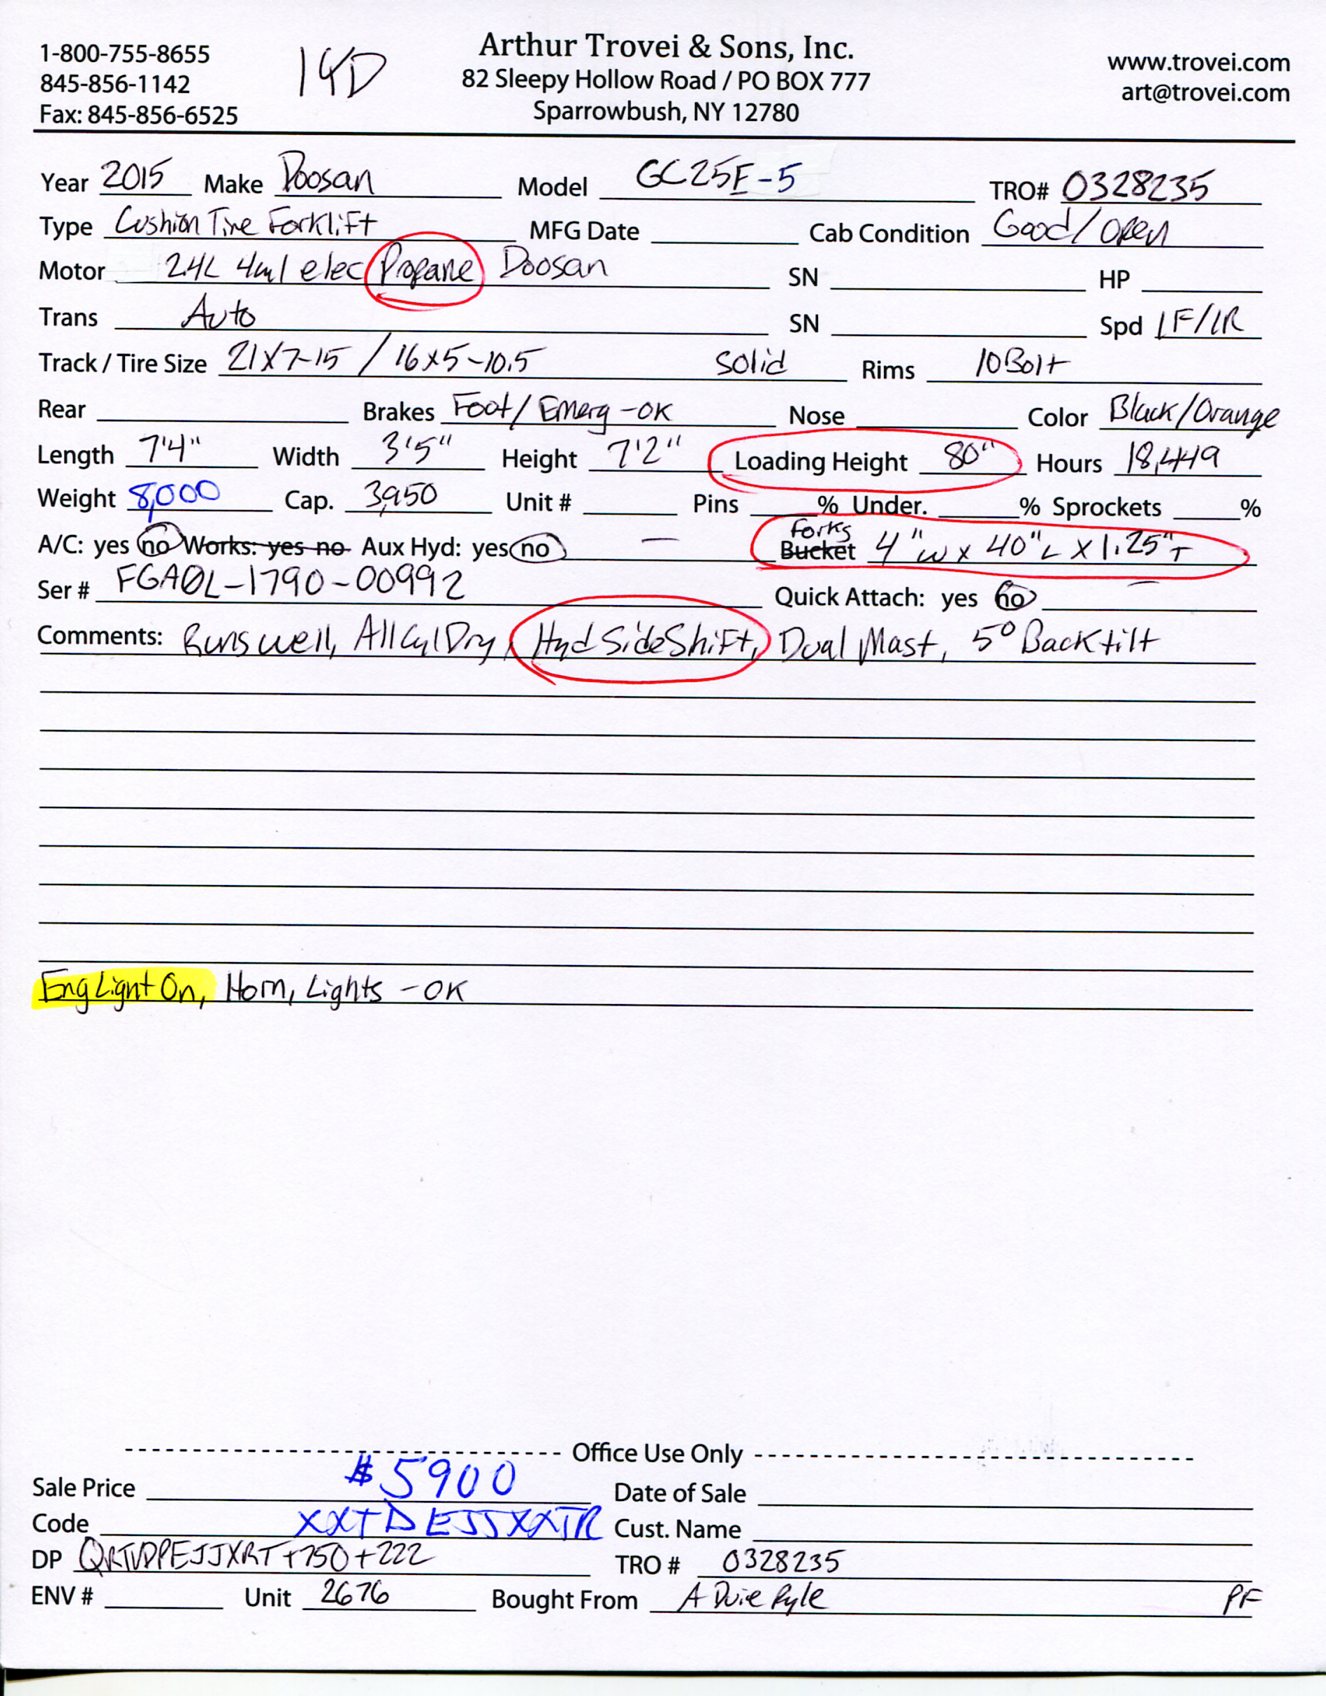 1-800-755-8655
845-856-1142
Fax: 845-856-6525
14D
Arthur Trovei & Sons, Inc.
82 Sleepy Hollow Road / PO BOX 777
Sparrowbush, NY 12780
www.trovei.com
art@trovei.com
Year 2015 Make Doosan Model GC25E-5 TRO# 0328235
Type Cushion Tire Forklift MFG Date Cab Condition Good/open
Motor 2.4L 4cyl elec Propane Doosan SN HP
Trans Auto SN Spd 1F/1R
Track / Tire Size 21x7-15 / 16x5-10.5 solid Rims 10Bolt
Rear Brakes Foot/Emerg-OK Nose Color Black/Orange
Length 7'4" Width 3'5" Height 7'2" Loading Height 80" Hours 18,449
Weight 8,000 Cap. 3,950 Unit # Pins % Under. % Sprockets %
A/C: yes no Works: yes no Aux Hyd: yes no — Forks Bucket 4"W x 40"L x 1.25"T
Ser # FGA0L-1790-00992 Quick Attach: yes no —
Comments: Runs well, All Cyl Dry, Hyd Side Shift, Dual Mast, 5° Back tilt
Eng Light On, Horn, Lights - OK
Office Use Only
Sale Price $5900 Date of Sale
Code XXTDEJJXXTR Cust. Name
DP QRTVDPEJJXRT+750+222 TRO # 0328235
ENV # Unit 2676 Bought From A Duie Pyle PF